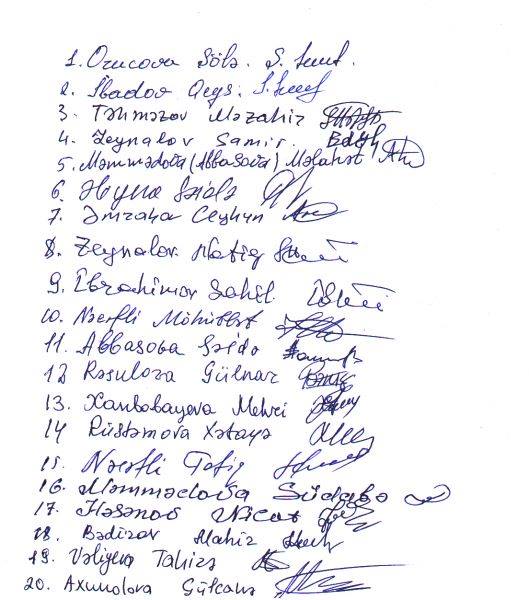 1. Orucova Şölə. Ş.
2. İbadov Qeys.
3. Təhməzov Məzahir
4. Zeynalov Samir.
5. Məmmədova (Abbasova) Məlahət
6.
7. Əmraha Ceyhun
8. Zeynalov Natiq
9. İbrahimov Sahil.
10. Nəcəfli Möhübbət
11. Abbasova Səidə
12 Rəsulova Gülnar
13. Xanbabayeva Mehri
14 Rüstəmova Xətayə
15. Nəcəfli Tofiq
16. Məmmədova Südabə
17. Həsənov Nicat
18. Bədirov Mahir
19. Vəliyeva Tahirə
20. Axundova